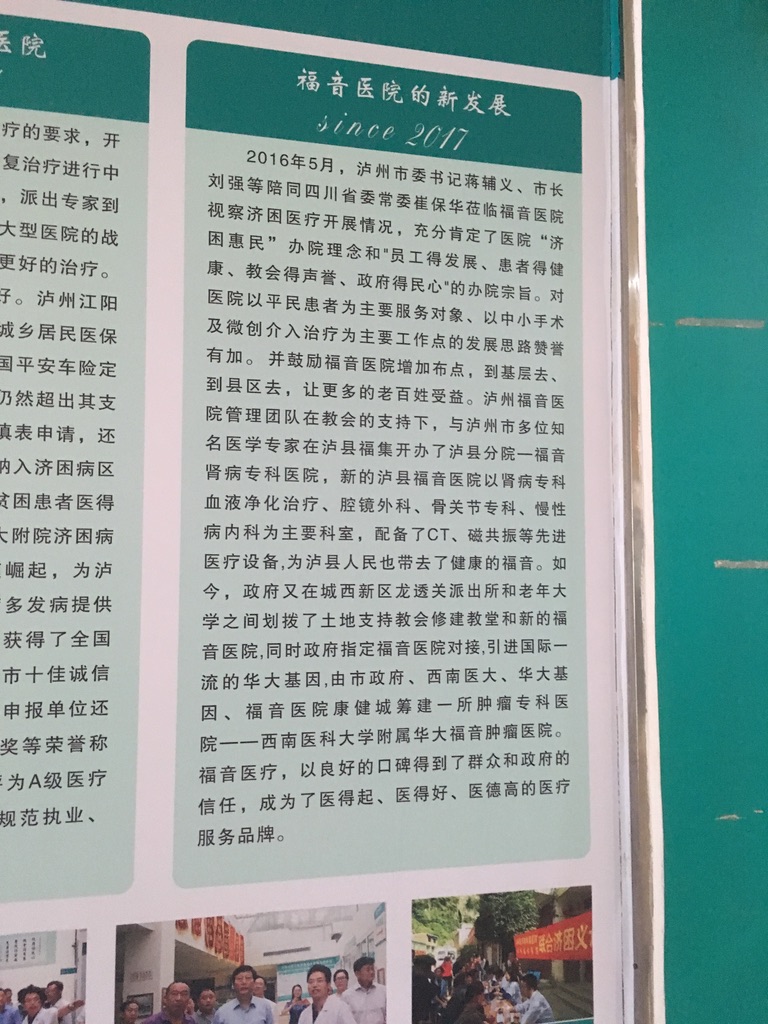 医院
疗的要求，开
复治疗进行中
，派出专家到
大型医院的战
更好的治疗。
好。泸州江阳
城乡居民医保
国平安车险定
仍然超出其支
填表申请，还
纳入济困病区
贫困患者医得
大附院济困病
崛起，为泸
多发病提供
获得了全国
市十佳诚信
申报单位还
奖等荣誉称
评为A级医疗
规范执业、
福音医院的新发展
since 2017
2016年5月，泸州市委书记蒋辅义、市长
刘强等陪同四川省委常委崔保华莅临福音医院
视察济困医疗开展情况，充分肯定了医院“济
困惠民”办院理念和"员工得发展、患者得健
康、教会得声誉、政府得民心"的办院宗旨。对
医院以平民患者为主要服务对象、以中小手术
及微创介入治疗为主要工作点的发展思路赞誉
有加。并鼓励福音医院增加布点，到基层去、
到县区去，让更多的老百姓受益。泸州福音医
院管理团队在教会的支持下，与泸州市多位知
名医学专家在泸县福集开办了泸县分院—福音
肾病专科医院，新的泸县福音医院以肾病专科
血液净化治疗、腔镜外科、骨关节专科、慢性
病内科为主要科室，配备了CT、磁共振等先进
医疗设备,为泸县人民也带去了健康的福音。如
今，政府又在城西新区龙透关派出所和老年大
学之间划拨了土地支持教会修建教堂和新的福
音医院,同时政府指定福音医院对接,引进国际一
流的华大基因,由市政府、西南医大、华大基
因、福音医院康健城筹建一所肿瘤专科医
院——西南医科大学附属华大福音肿瘤医院。
福音医疗，以良好的口碑得到了群众和政府的
信任，成为了医得起、医得好、医德高的医疗
服务品牌。
联合济困义